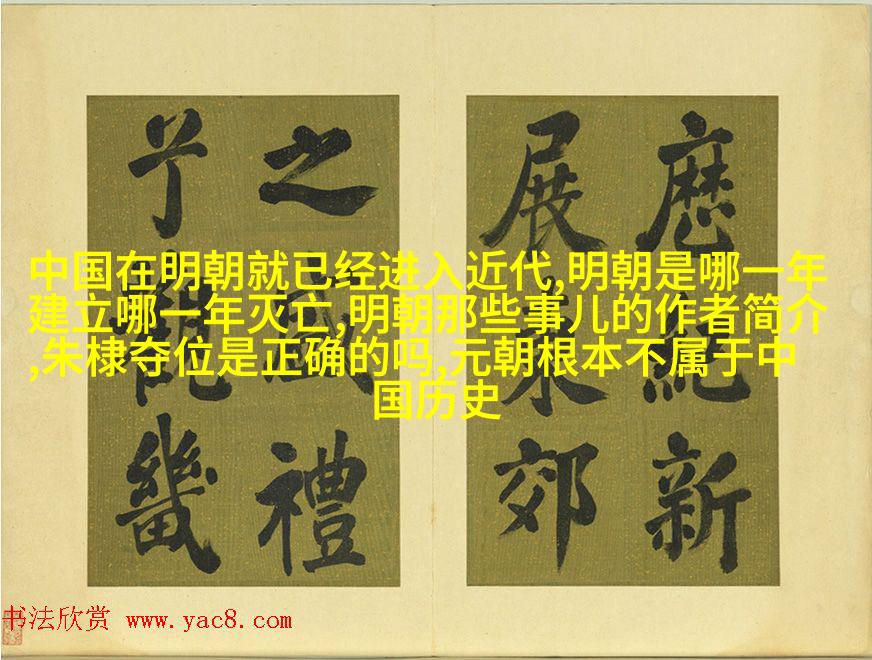 中国在明朝就已经进入近代,明朝是哪一年
建立哪一年灭亡,明朝那些事儿的作者简介
,朱棣夺位是正确的吗,元朝根本不属于中
国历史
厯新
展采郊
之盛禮
觀畿
书法欣赏 www.yac8.com